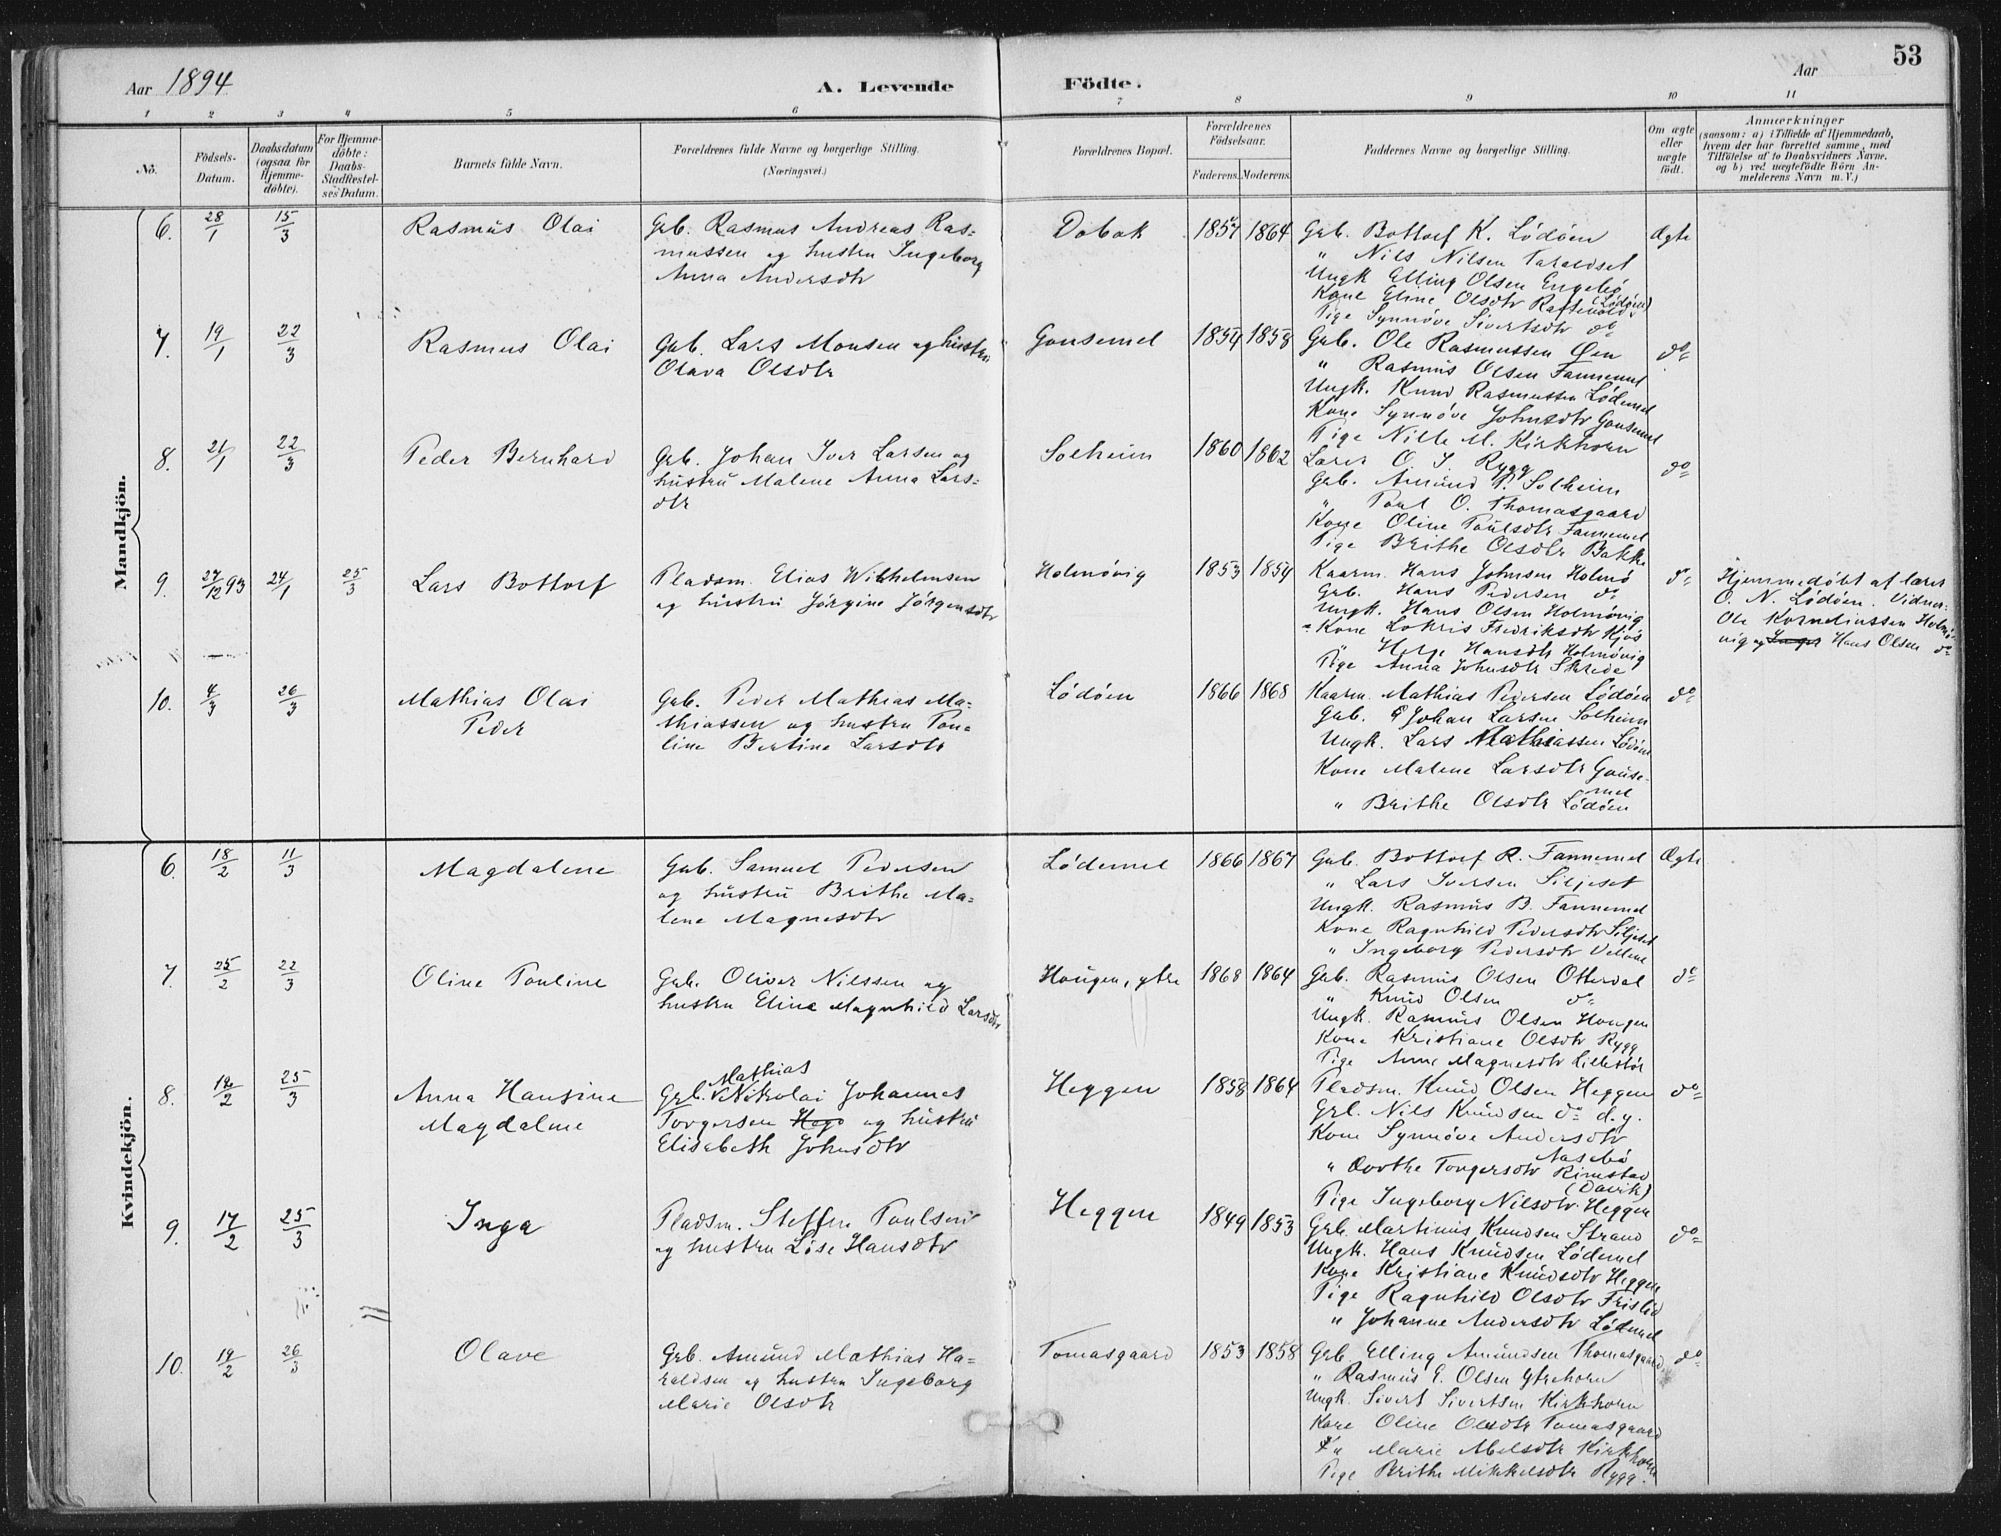 53
Aar 1894
A. Levende Födte.
Aar
1 2 3 4 5 6 7 8 9 10 11
No.
Födsels-Datum.
Daabsdatum (ogsaa for Hjemme-döbte).
For Hjemme-döbte: Daabs-Stadfæstel-ses Datum.
Barnets fulde Navn.
Forældrenes fulde Navne og borgerlige Stilling.
(Næringsvei.)
Forældrenes Bopæl.
Forældrenes Födselsaar.
Faderens. Moderens.
Faddernes Navne og borgerlige Stilling.
Om ægte eller uægte födt.
Anmærkninger
(saasom: a) i Tilfælde af Hjemmedaab,
hvem der har forrettet samme, med
Tilföielse af to Daabsvidners Navne,
og b) ved uægtefödte Börn An-
melderens Navn m. V.)
Mandkjön.
6. 28/1 15/3 Rasmus Olai
Grb. Rasmus Andreas Ras-
mussen og hustru Ingeborg
Anna Andersdtr
Dobak 1857 1864
Grb. Bottolf K. Lödöen
" Nils Nilsen Taraldset
Ungk Elling Olsen Engebö
Kone Eline Olsdtr Raftevold (Lödöen)
Pige Synnöve Sivertsdtr do
Ægte
7. 19/1 22/3 Rasmus Olai
Grb. Lars Monsen og hustru
Olava Olsdtr
Gausemel 1854 1858
Grb. Ole Rasmussen Öen
" Rasmus Olsen Fannemel
Ungk. Knud Rasmussen Lödemel
Kone Synnöve Johnsdtr Gausemel
Pige Nille M. Kirkhorn
do
8. 21/1 22/3 Peder Bernhard
Grb. Johan Iver Larsen og
hustru Malene Anna Lars-
dtr
Solheim 1860 1862
Lærer O. J. Rygg
Grb. Amund P. Solheim
" Poul O. Thomasgaard
Kone Oline Poulsdtr Fannemel
Pige Brithe Olsdtr Bakke
do
9. 27/12 93 24/1 25/3 Lars Bottolf
Pladsm. Elias Wilhelmsen
og hustru Jörgine Jörgensdtr
Holmövig 1853 1854
Kaarm. Hans Johnsen Holmö
Grb. Hans Pedersen do
Ungk. Hans Olsen Holmövig
Kone Lokris Fredriksdtr Kjös
" Helge Hansdtr Holmövig
Pige Anna Johnsdtr Skrede
do
Hjemmedöbt af lærer
O. N. Lödöen. Vidner:
Ole Kornelinssen Holmö-
vig og Hans Olsen do
10. 4/3 26/3 Mathias Olai
Peder
Grb. Peder Mathias Ma-
thiassen og hustru Pou-
line Bertine Larsdtr
Lödöen 1866 1868
Kaarm. Mathias Pedersen Lödöen
Grb. Johan Larsen Solheim
Ungk. Lars Mathiassen Lödöen
Kone Malene Larsdtr Gause-
mel
" Brithe Olsdtr Lödöen
do
Kvindekjön.
6. 18/2 11/3 Magdalene
Grb. Samuel Pedersen
og hustru Brithe Ma-
lene Magnesdtr
Lödemel 1866 1867
Grb. Bottolf R. Fannemel
" Lars Iversen Siljeset
Ungk. Rasmus B. Fannemel
Kone Ragnhild Pedersdtr Siljeset
" Ingeborg Pedersdtr Vellene
Ægte
7. 25/2 22/3 Oline Pouline
Grb. Oliver Nilssen og
hustru Eline Magnhild Larsdtr
Hougen, ytre 1868 1864
Grb. Rasmus Olsen Otterdal
" Knud Olsen do
Ungk. Rasmus Olsen Hougen
Kone Kristiane Olsdtr Rygg
Pige Anne Magnesdtr Lillestöl
do
8. 12/2 25/3 Anna Hansine
Magdalene
Mathias
Grb. Nikolai Johannes
Torgersen og hustru
Elisabeth Johnsdtr
Heggen 1858 1864
Pladsm. Knud Olsen Heggen
Grb. Nils Knudsen do d.y.
Kone Synnöve Andersdtr
Aasebö
" Dorthe Torgersdtr Rimstad
(Davik)
Pige Ingeborg Nilsdtr Heggen
do
9. 17/2 25/3 Inga
Pladsm. Steffen Poulsen
og hustru Löse Hansdtr
Heggen 1849 1853
Grb. Martinus Knudsen Strand
Ungk. Hans Knudsen Lödemel
Kone Kristiane Knudsdtr Heggen
Pige Ragnhild Olsdtr Frislid
" Johanne Andersdtr Lödemel
do
10. 19/2 26/3 Olave
Grb. Amund Mathias Ha-
raldsen og hustru Ingeborg
Marie Olsdtr
Tomasgaard 1853 1858
Grb Elling Amundsen Thomasgaard
" Rasmus E. Olsen Ytrehorn
Ungk. Sivert Sivertsen Kirkhorn
Kone Oline Olsdtr Tomasgaard
" Marie Abelsdtr Kirkhorn
Pige Brithe Mikkelsdtr Rygg.
do